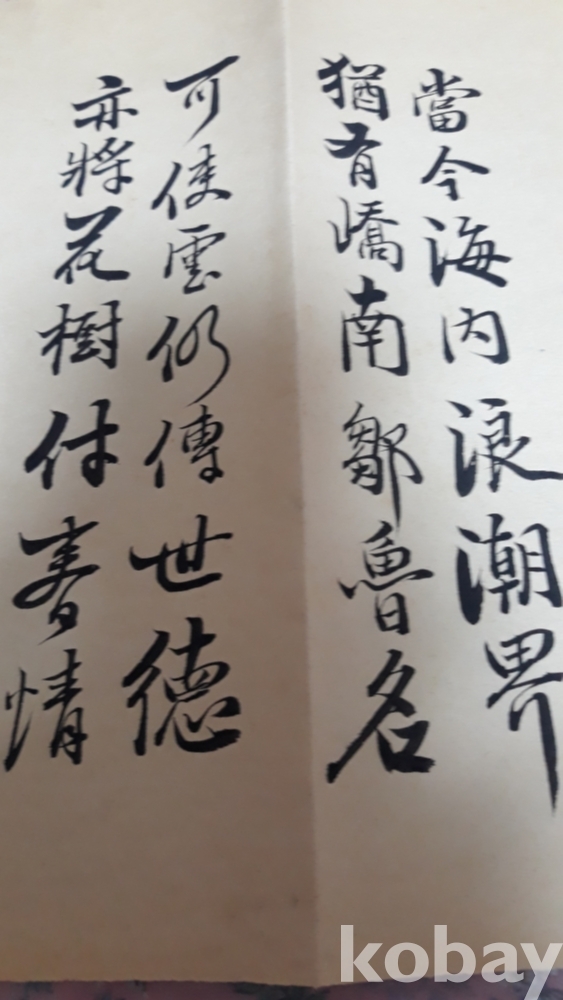 當今海内浪潮界
猶有嶠南鄒魯名
可使雲仍傳世德
亦將花樹付春情
kobay